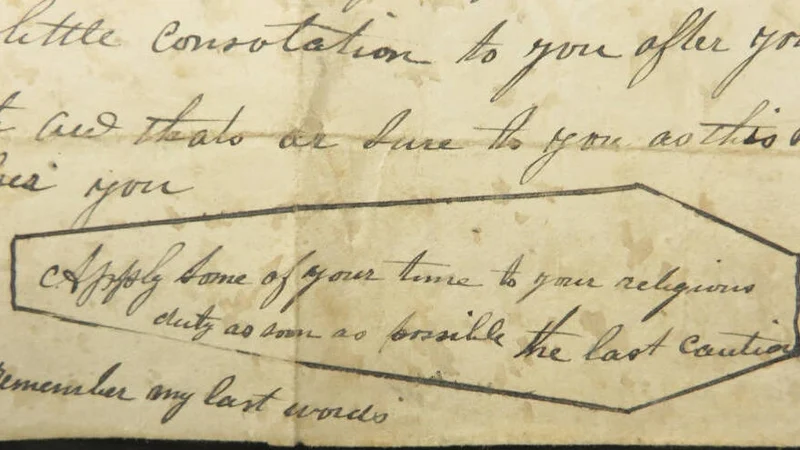 little consotation to you after you
and thats as sure to you as this
you
Apply Some of your time to your religious
duty as soon as possible the last caution
remember my last words